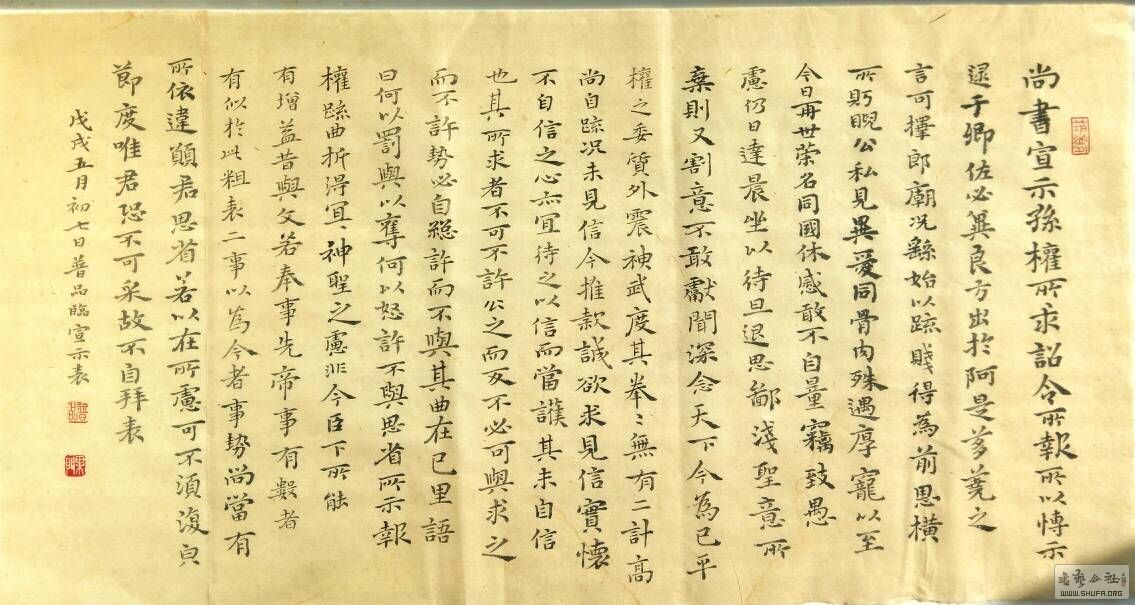 尚書宣示孫權所求詔令所報所以博示
逮于卿佐必冀良方出於阿是芻蕘之
言可擇郎廟況繇始以踈賤得為前恩橫
所眄睨公私見異愛同骨肉殊遇厚寵以至
今日再世荣名同國休慼敢不自量竊致愚
慮仍日達晨坐以待旦退思鄙淺聖意所
棄則又割意不敢獻聞深念天下今為已平
權之委質外震神武度其拳〻無有二計高
尚自踈況未見信今推款誠欲求見信實懷
不自信之心亦冝待之以信而當護其未自信
也其所求者不可不許許之而反不必可與求之
而不許勢必自絕許而不與其曲在己里語
曰何以罰與以奪何以怒許不與思省所示報
權踈曲折得冝〻神聖之慮非今臣下所能
有增益昔與文若奉事先帝事有數者
有似於此粗表二事以為今者事勢尚當有
所依違願君思省若以在所慮可不須復皃
節度唯君恐不可采故不自拜表
戊戌五月初七日普品臨宣示表
書藝公社
WWW.SHUFA.ORG